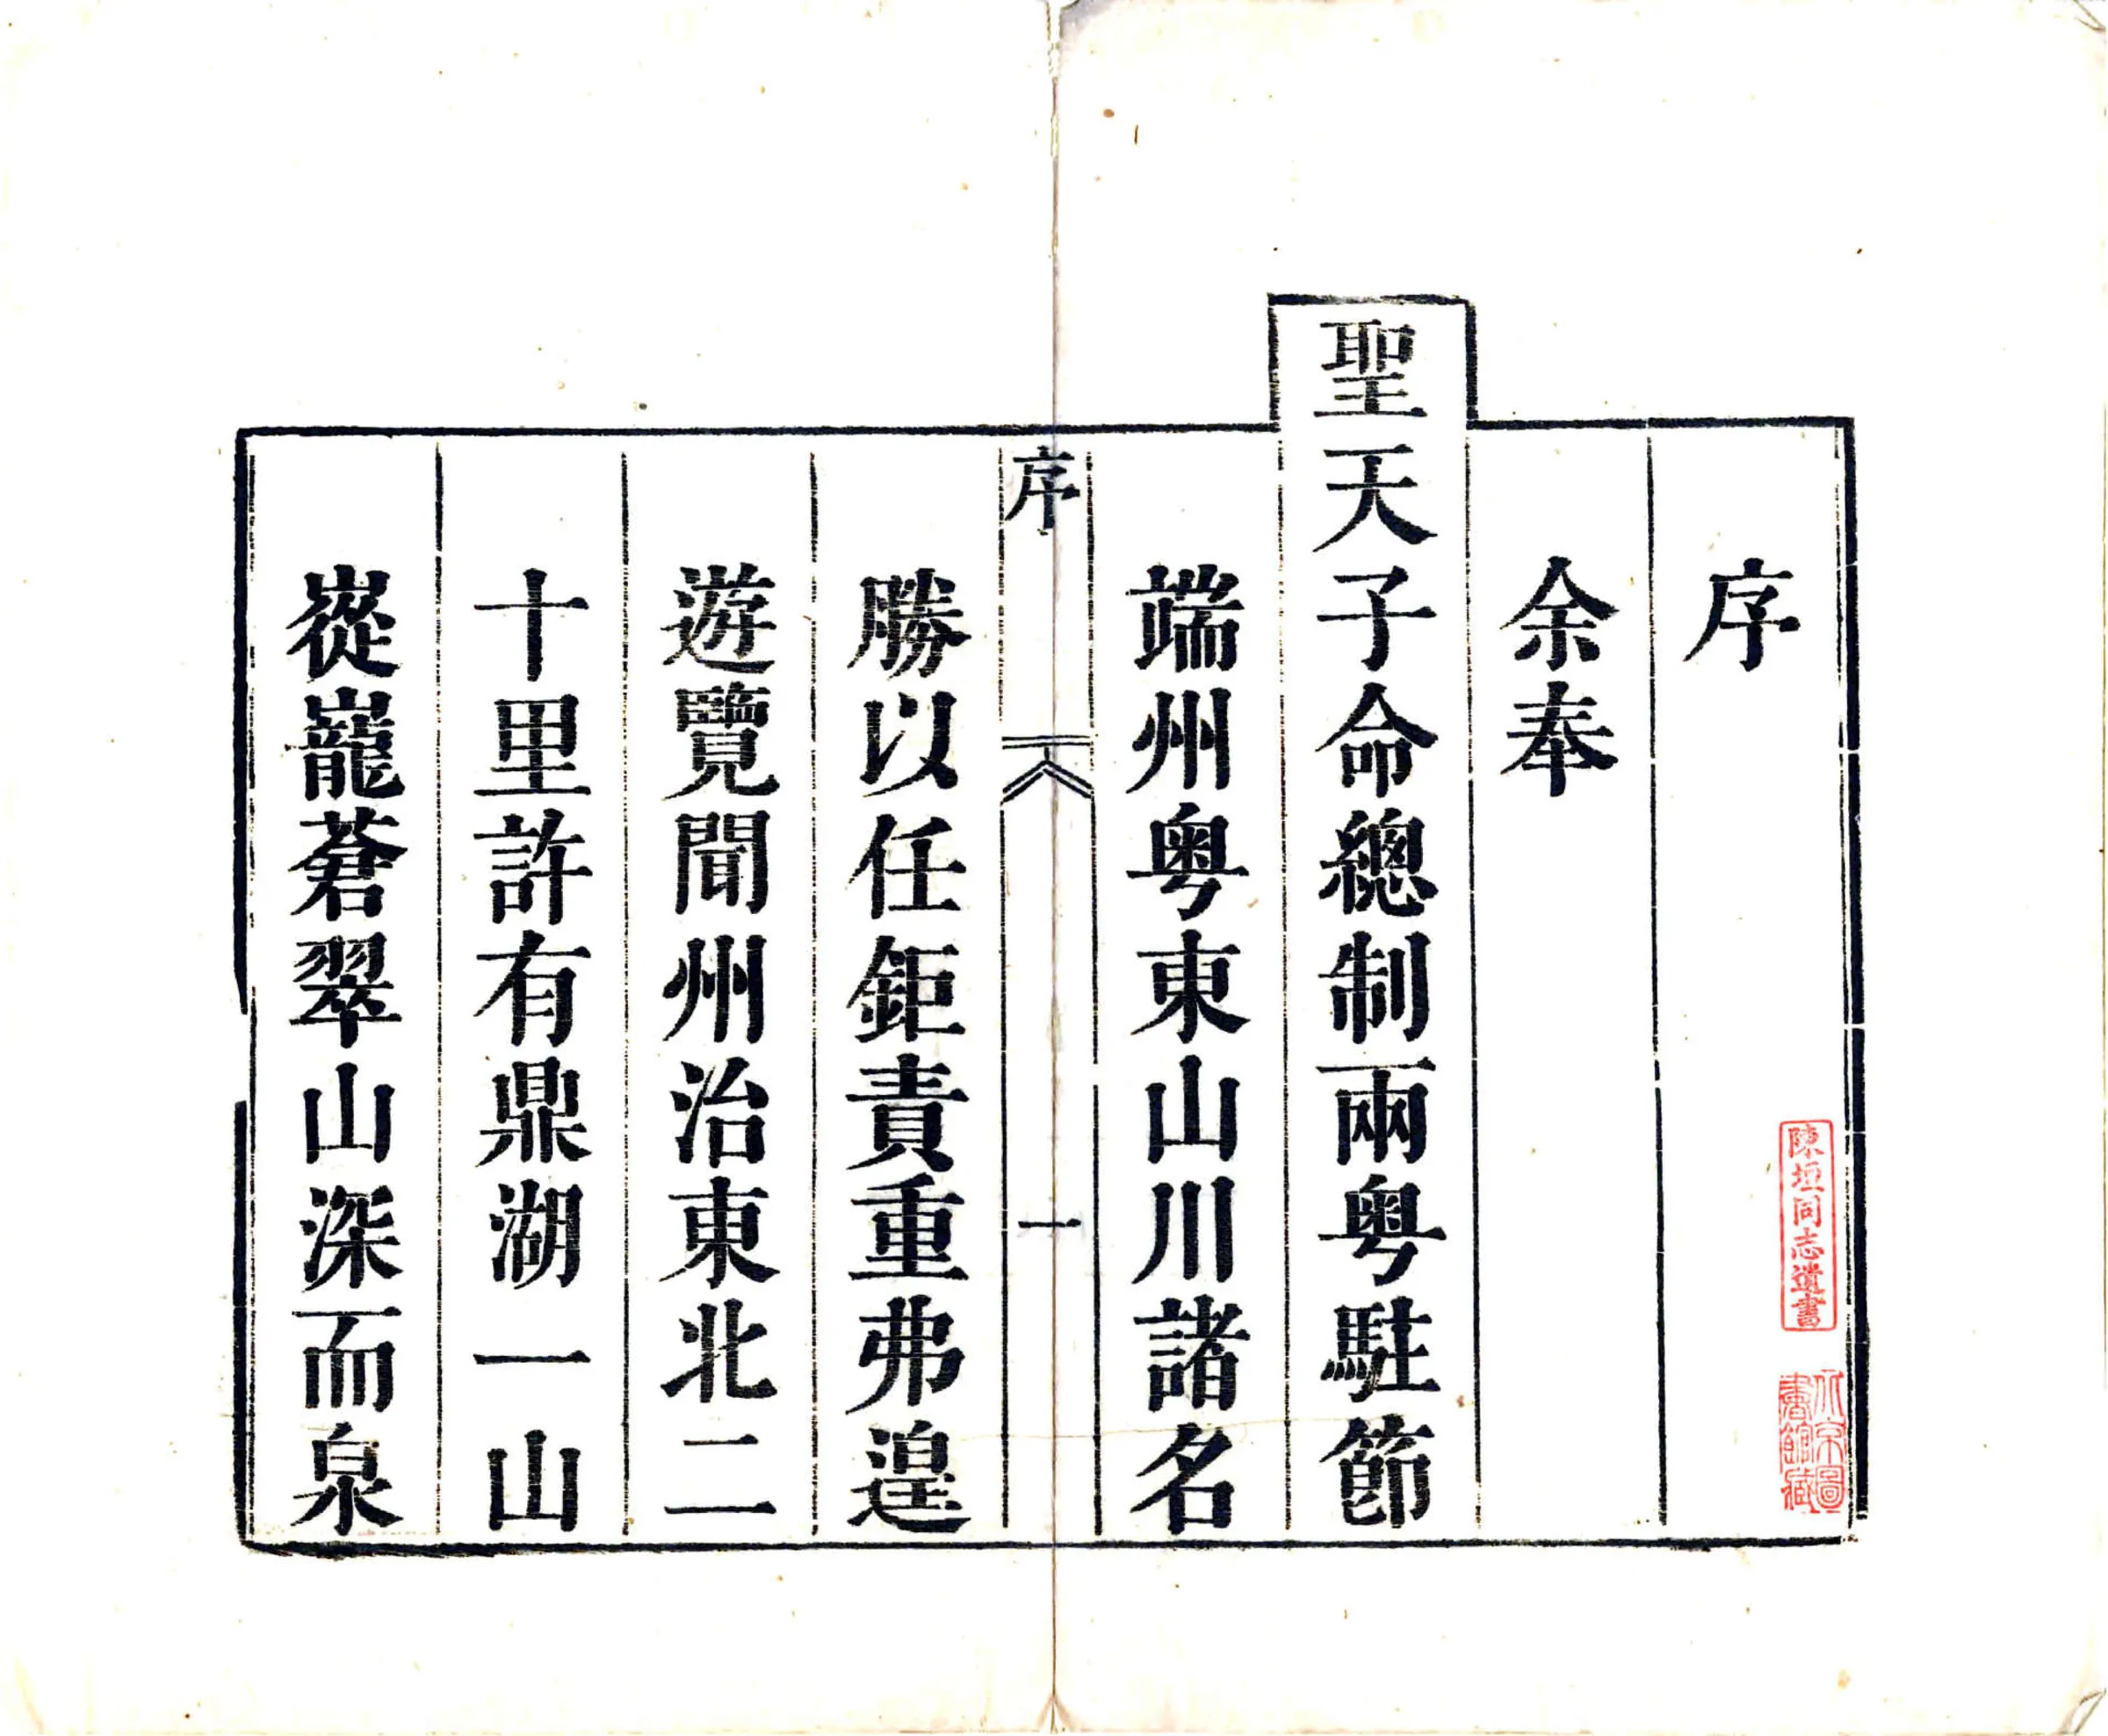 序
余奉
聖天子命總制兩粵駐節
端州粵東山川諸名
序
一
勝以任鉅責重弗遑
遊覽聞州治東北二
十里許有鼎湖一山
嵸巃蒼翠山深而泉
陳垣同志遺書
北京圖
書館藏